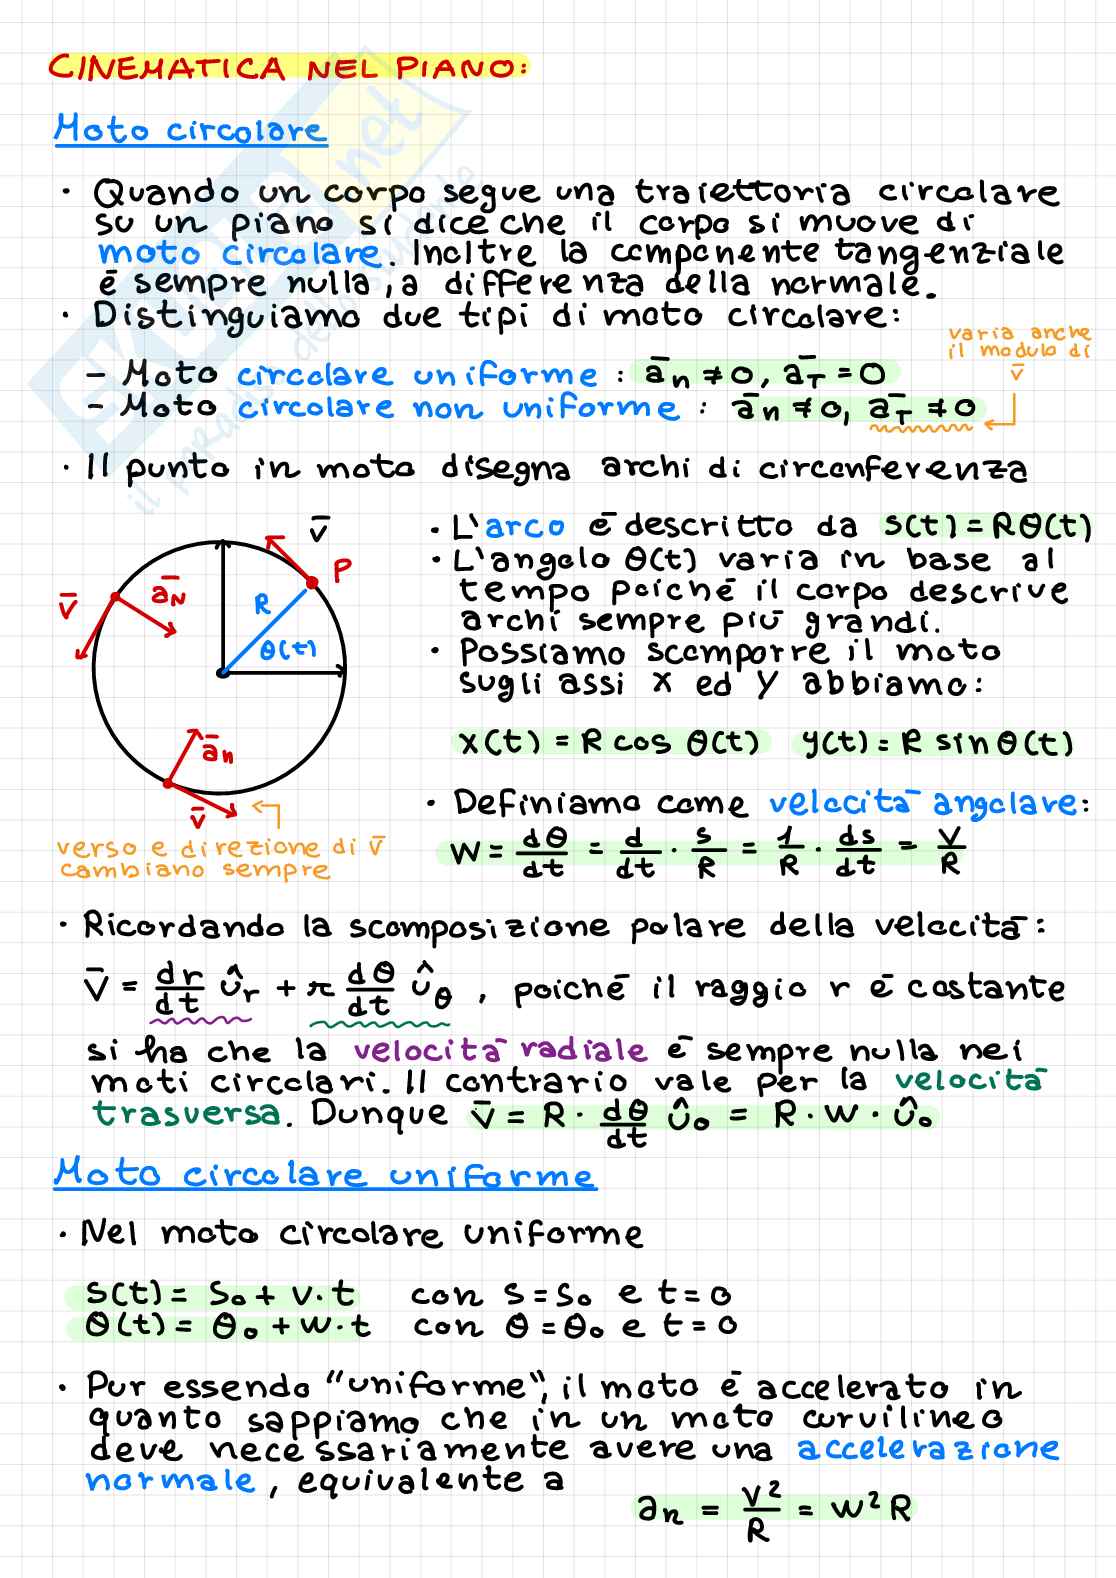 CINEMATICA NEL PIANO:
Moto circolare
· Quando un corpo segue una traiettoria circolare
su un piano si dice che il corpo si muove di
moto circolare. Inoltre la componente tangenziale
è sempre nulla, a differenza della normale.
· Distinguiamo due tipi di moto circolare:
varia anche
il modulo di
v̄
- Moto circolare uniforme : ān ≠ 0, āT = 0
- Moto circolare non uniforme : ān ≠ 0, āT ≠ 0
· Il punto in moto disegna archi di circonferenza
v̄
P
āN
v̄
R
θ(t)
ān
v̄
verso e direzione di v̄
cambiano sempre
· L'arco è descritto da s(t) = Rθ(t)
· L'angolo θ(t) varia in base al
tempo poiché il corpo descrive
archi sempre più grandi.
· Possiamo scomporre il moto
sugli assi x ed y abbiamo:
x(t) = R cos θ(t) y(t) = R sin θ(t)
· Definiamo come velocità angolare:
w = dθ/dt = d/dt · s/R = 1/R · ds/dt = v/R
· Ricordando la scomposizione polare della velocità:
v̄ = dr/dt ûr + r dθ/dt ûθ , poiché il raggio r è costante
si ha che la velocità radiale è sempre nulla nei
moti circolari. Il contrario vale per la velocità
trasversa. Dunque v̄ = R · dθ/dt û₀ = R · w · û₀
Moto circolare uniforme
· Nel moto circolare uniforme
s(t) = s₀ + v · t con s = s₀ e t = 0
θ(t) = θ₀ + w · t con θ = θ₀ e t = 0
· Pur essendo "uniforme", il moto è accelerato in
quanto sappiamo che in un moto curvilineo
deve necessariamente avere una accelerazione
normale, equivalente a
an = v²/R = w² R